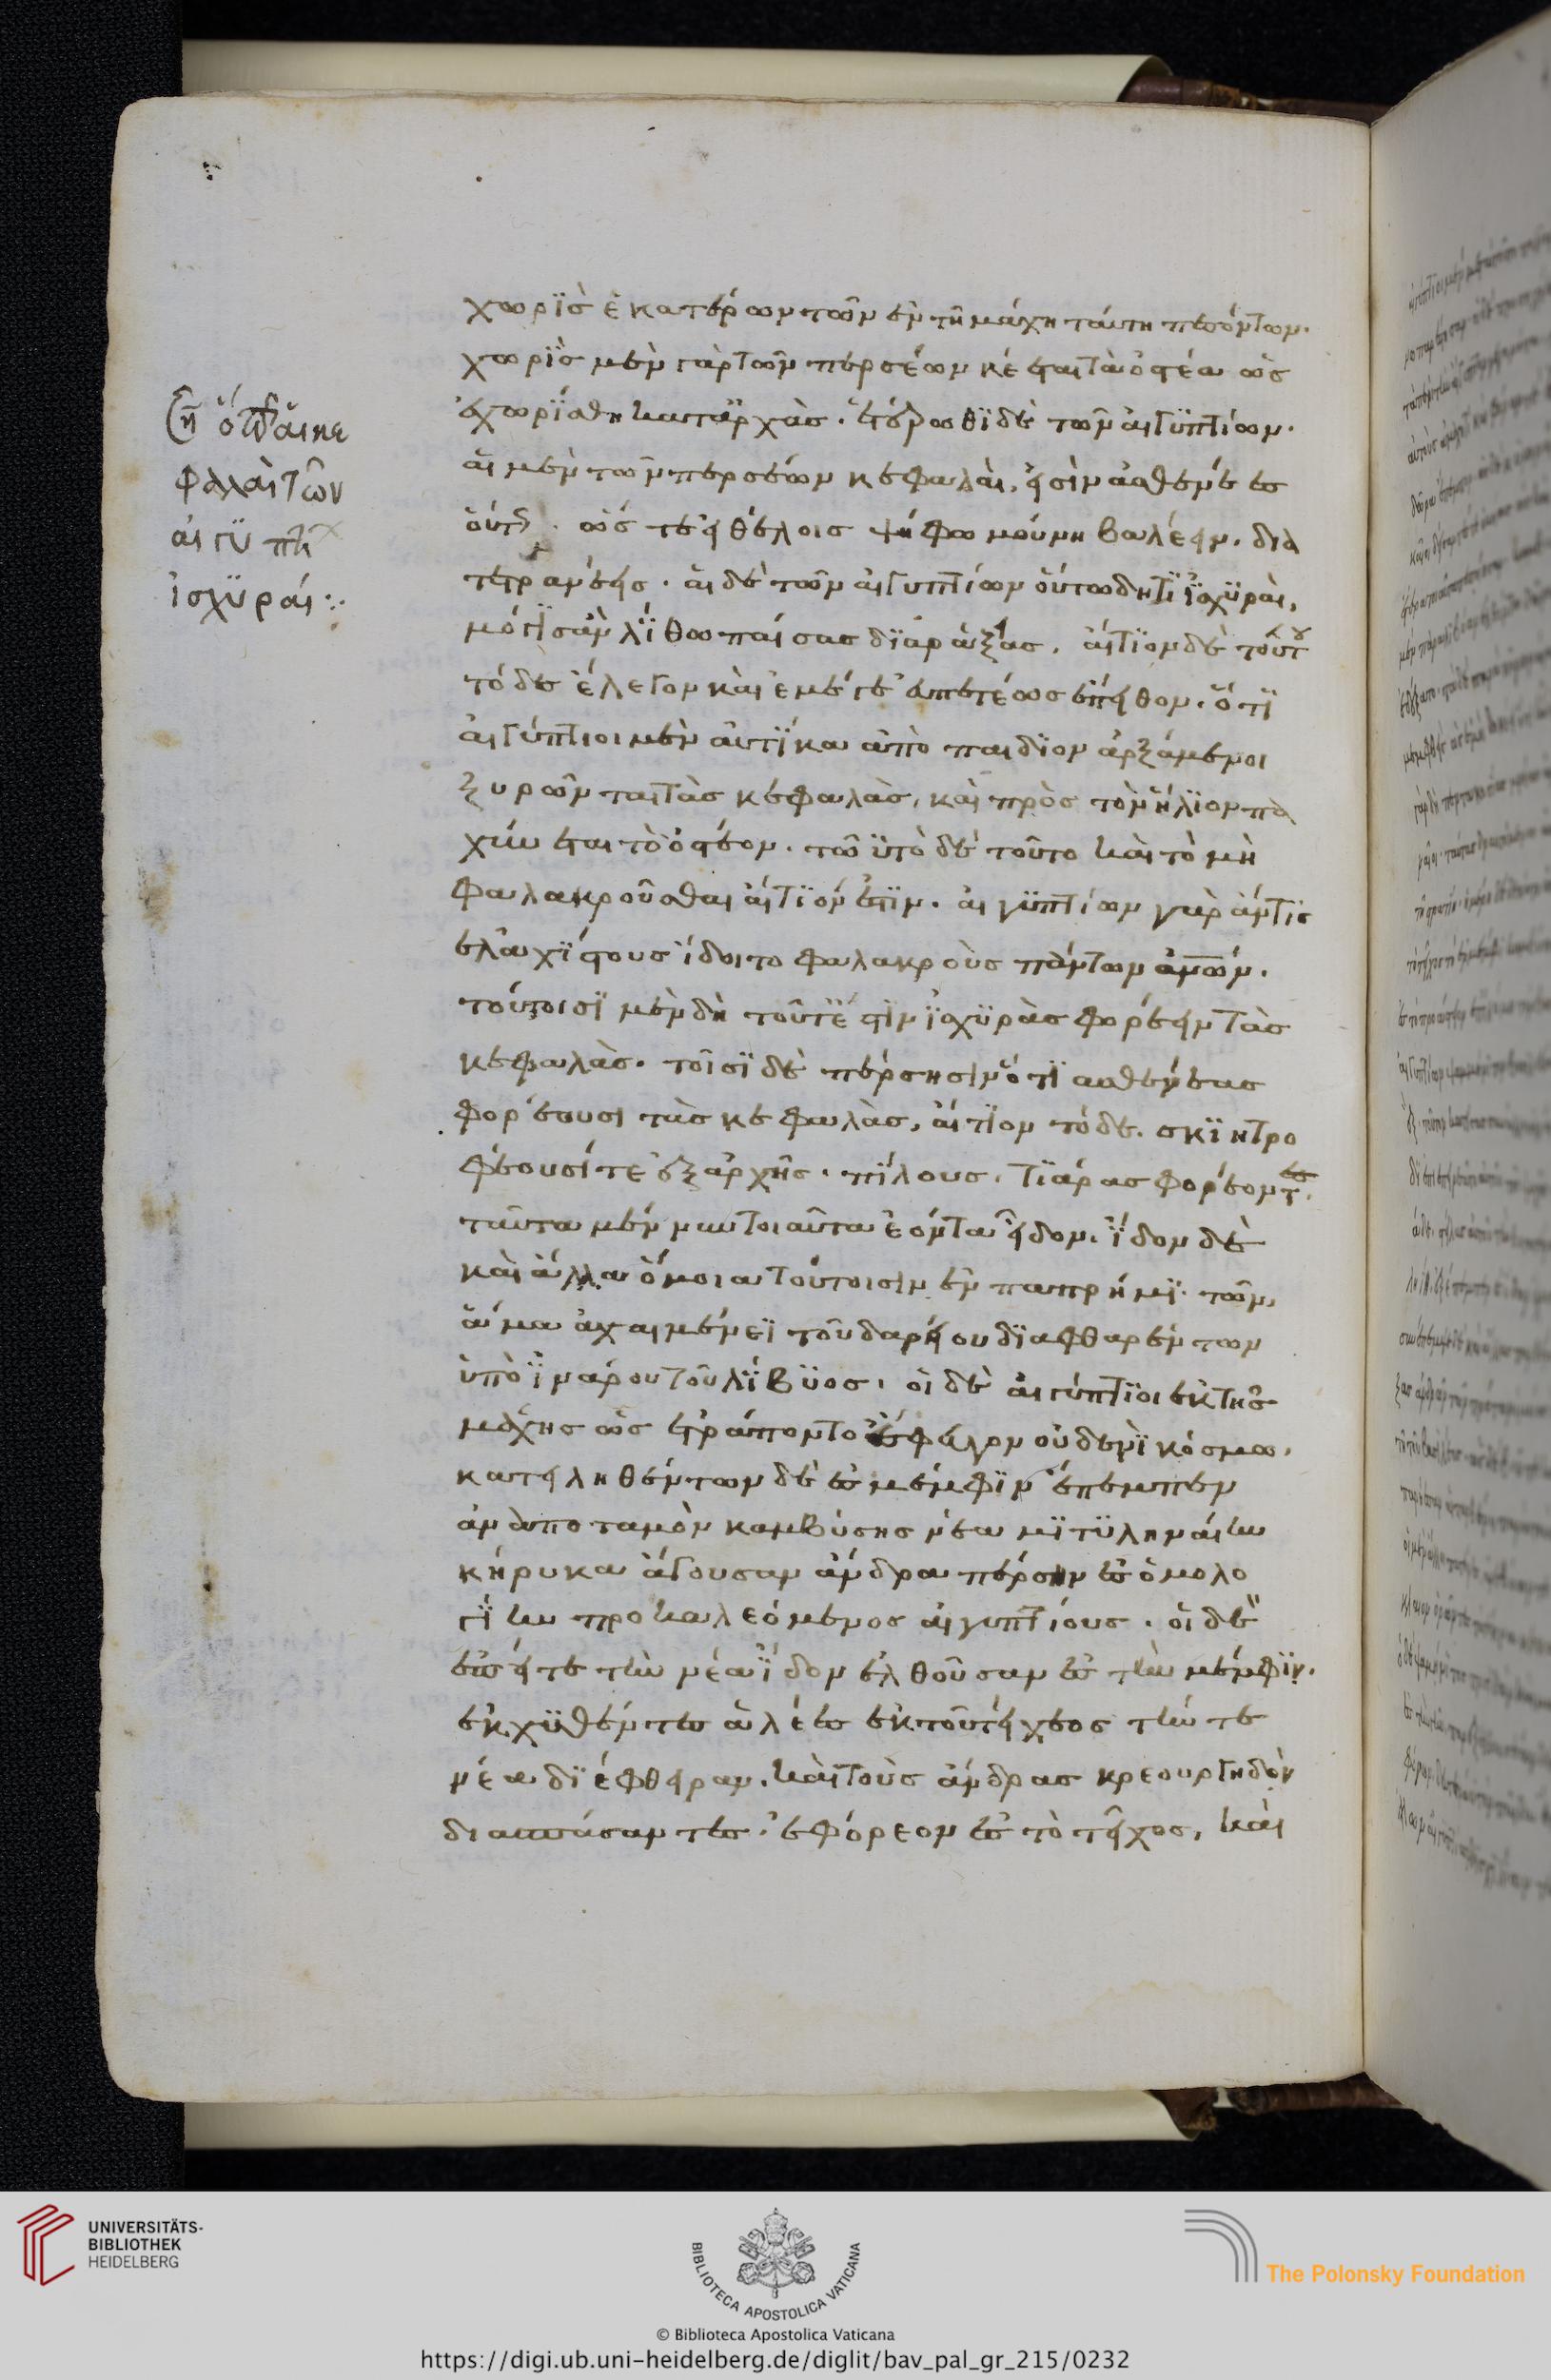 χωρϊς ἑκατέρων τῶν ἐν τῆ μάχη ταύτη πεσόντων·
χωρϊς μὲν γὰρ τῶν περσέων κέεται τὰ ὀστέα ὡς
ἐχωρίσθη καταρχὰς· ἑτέρωθϊ δὲ τῶν αἰγϋπτίων·
αἱ μὲν τῶν περσέων κεφαλαὶ, εἰσὶν ἀσθενέες
οὕτω· ὥς τε εἰ θέλοις ψήφω μούνη βαλέειν, δια
τετρανέεις· αἱ δὲ τῶν αἰγυπτίων οὕτω δητϊ ἰσχϋραὶ,
μόγϊς ἂν λίθω παίσας δϊαράξας. αἴτϊον δὲ τούτου
τόδε ἔλεγον καὶ ἐμέ γε εὐπετέως ἔπειθον, ὅτϊ
αἰγύπτιοι μὲν αὐτίκα ἀπὸ παιδϊον ἀρξάμενοι
ξυρῶνται τὰς κεφαλὰς, καὶ πρὸς τὸν ἥλϊον πα
χύνεται τὸ ὀστέον. τὠϋτὸ δὲ τοῦτο καὶ τὸ μὴ
φαλακροῦσθαι αἴτϊόν ἐστϊν. αἰγϋπτίων γὰρ ἄν τϊς
ἐλαχίστους ἴδοιτο φαλακροὺς πάντων ἀνων.
τούτοισϊ μὲν δὴ τοῦτ ἔστϊν ἰσχϋρὰς φορέειν τὰς
κεφαλὰς. τοῖσϊ δὲ πέρσησιν ὅτϊ ἀσθενέας
φορέουσι τὰς κεφαλὰς, αἴτϊον τόδε. σκϊητρο
φέουσί τε ἐξ ἀρχῆς. πίλους, τϊάρας φορέοντες.
ταῦτα μέν νυν τοιαῦτα ἐόντα εἶδον. ἴδον δὲ
καὶ ἄλλα ὅμοια τούτοισιν ἐν παπρήμϊ. τῶν,
ἅμα ἀχαιμένεϊ τοῦ δαρείου δϊαφθαρέντων
ὑπὸ ϊνάρου τοῦ λίβϋος. οἱ δὲ αἰγύπτϊοι ἐκ τῆς
μάχης ὡς ἐτράποντο ἔφευγον οὐδενϊ κόσμω.
κατειληθέντων δὲ ἐς μέμφϊν ἔπεμπεν
ἀνα ποταμὸν καμβύσης νέα μϊτϋληναίην
κήρυκα ἄγουσαν ἄνδρα πέρσην ἐς ὁμολο
γίην προκαλεόμενος αἰγυπτίους. οἱ δὲ
ἐπεί τε τὴν νέα ἴδον ἐλθοῦσαν ἐς τὴν μέμφϊν.
ἐκχϋθέντες ἁλέες ἐκ τοῦ τείχεος τήν τε
νέα δϊέφθειραν, καὶ τοὺς ἄνδρας κρεουργηδὸν
διασπάσαντες. ἐφόρεον ἐς τὸ τεῖχος, καὶ
φαλαὶ τῶν
αἰγϋπτί
ἰσχϋραί:·
UNIVERSITÄTS-
BIBLIOTHEK
HEIDELBERG
BIBLIOTECA APOSTOLICA VATICANA
The Polonsky Foundation
© Biblioteca Apostolica Vaticana
https://digi.ub.uni-heidelberg.de/diglit/bav_pal_gr_215/0232